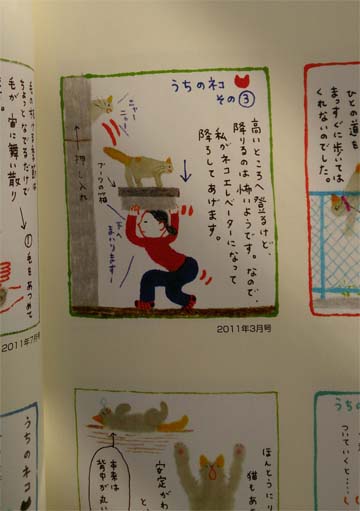 うちのネコ
その③
高いところへ登るけど、
降りるのは怖いようです。なので、
私がネコエレベーターになって
降ろしてあげます。
ニャー
ニャー
押し入れ
下へ
まいりますー
2011年3月号
ひとの道を
まっすぐに歩いては
くれないのでした。
ちょっとなでるだけで
毛が宙に舞い散り
①毛をあつめて
2011年7月号
うちのネコ
本来は
背中が丸い
安定がわ
と、
ほんとうにり
猫もあの
うちの
ついていくと…